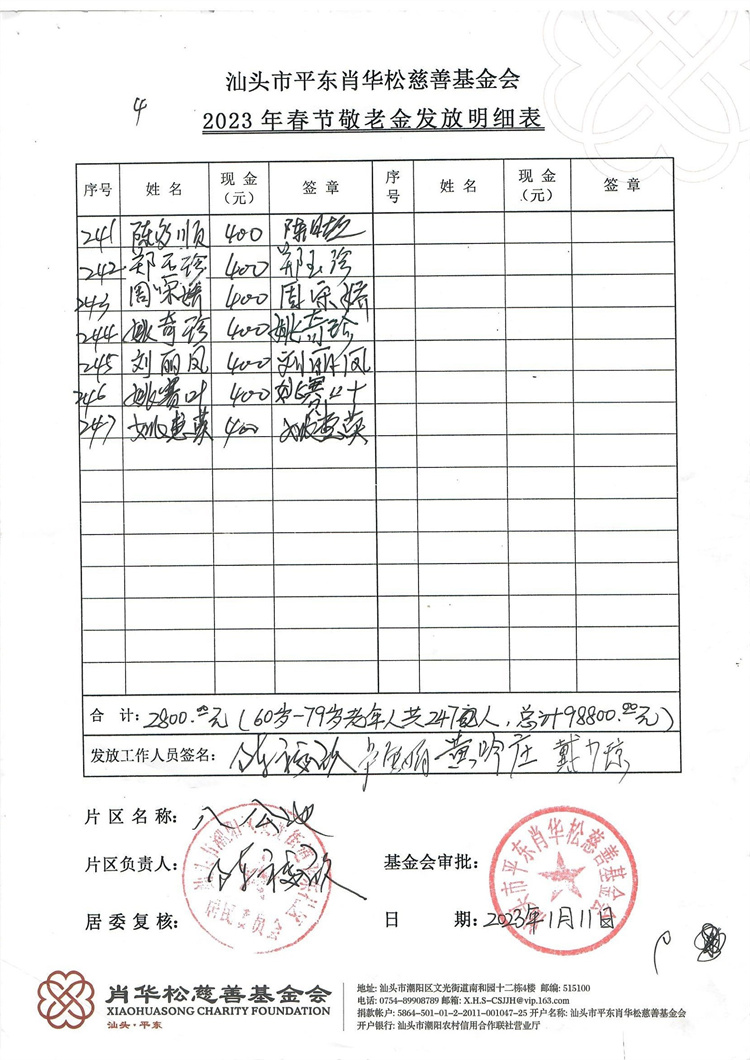 汕头市平东肖华松慈善基金会
4
2023年春节敬老金发放明细表
序号 姓名 现金(元) 签章 序号 姓名 现金(元) 签章
241 陈 顺 400 陈
242 郑玉珍 400 郑玉珍
243 周深 400 周深
244 姚奇珍 400 姚奇珍
245 刘丽凤 400 刘丽凤
246 姚赛叶 400 姚赛叶
247 姚惠英 400 姚惠英
合 计: 2800.00元(60岁-79岁老年人共247人,总计98800.00元)
发放工作人员签名: 黄吟庄 戴
片区名称: 八公地
片区负责人:
基金会审批:
居委复核:
日 期: 2023年1月11日
居民委员会
汕头市平东肖华松慈善基金会
肖华松慈善基金会
XIAOHUASONG CHARITY FOUNDATION
汕头·平东
地址: 汕头市潮阳区文光街道南和园十二栋4楼 邮编: 515100
电话: 0754-89908789 邮箱: X.H.S-CSJJH@vip.163.com
捐款帐户: 5864-501-01-2-2011-001047-25 开户名称: 汕头市平东肖华松慈善基金会
开户银行: 汕头市潮阳农村信用合作联社营业厅